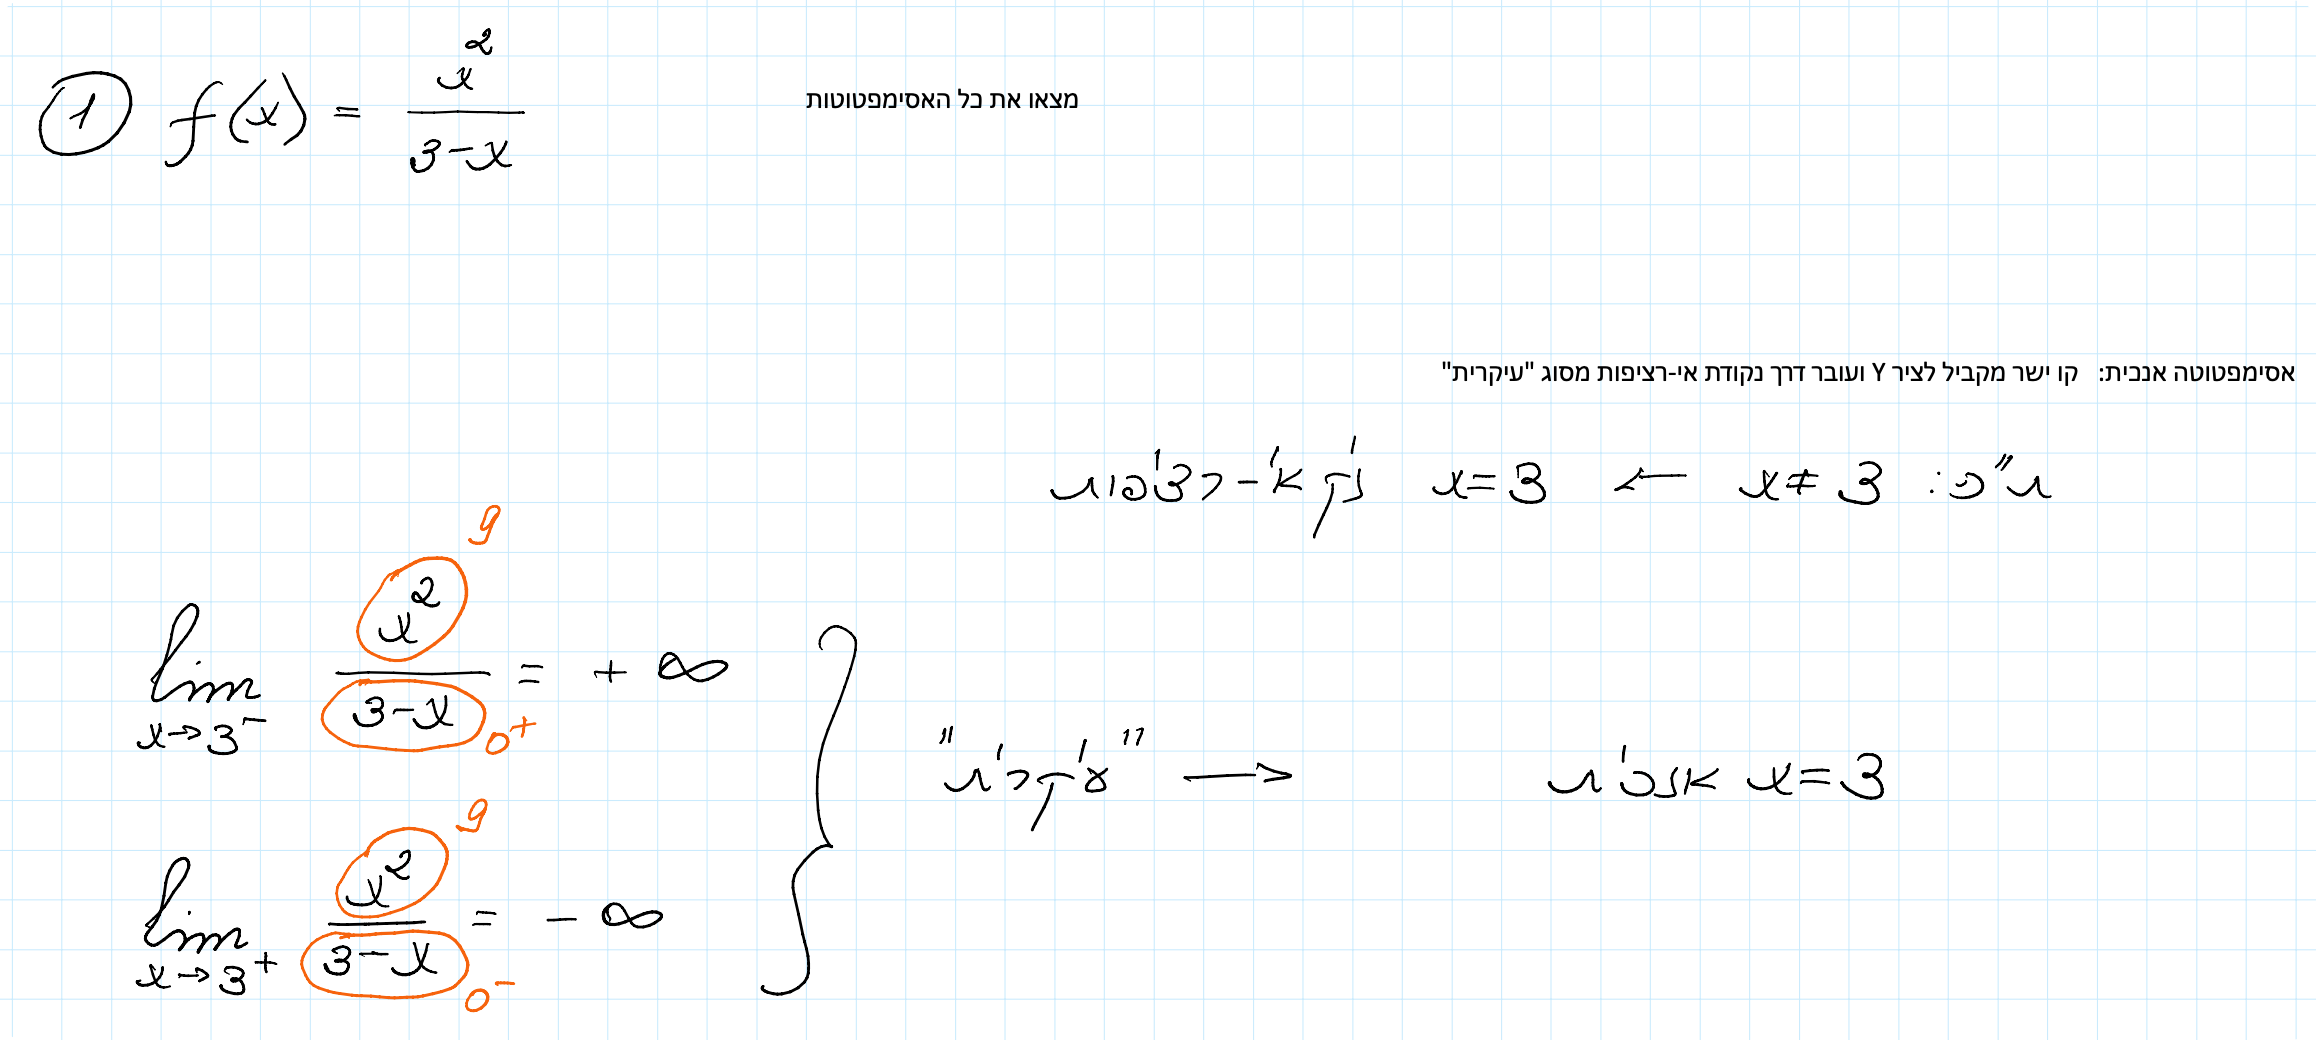 ① f(x) = x² / (3-x)
מצאו את כל האסימפטוטות
אסימפטוטה אנכית: קו ישר מקביל לציר Y ועובר דרך נקודת אי-רציפות מסוג "עיקרית"
ת"פ: x≠3 ← x=3 נק' אי-רציפות
lim x→3⁻ x² / (3-x) = +∞
9
0⁺
lim x→3⁺ x² / (3-x) = -∞
9
0⁻
} "עיקרית" → x=3 אנכית